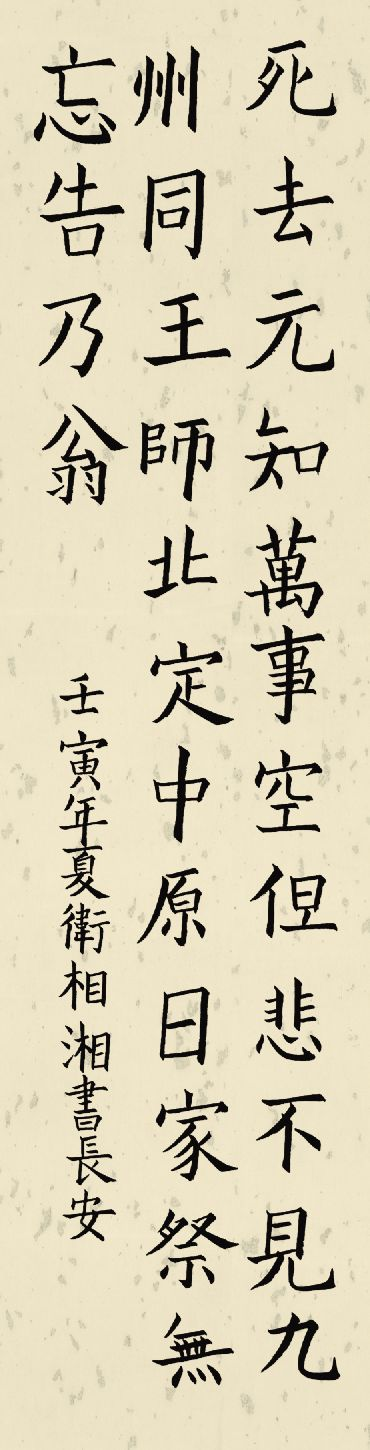 死去元知萬事空但悲不見九
州同王師北定中原日家祭無
忘告乃翁
壬寅年夏衛相湘書長安